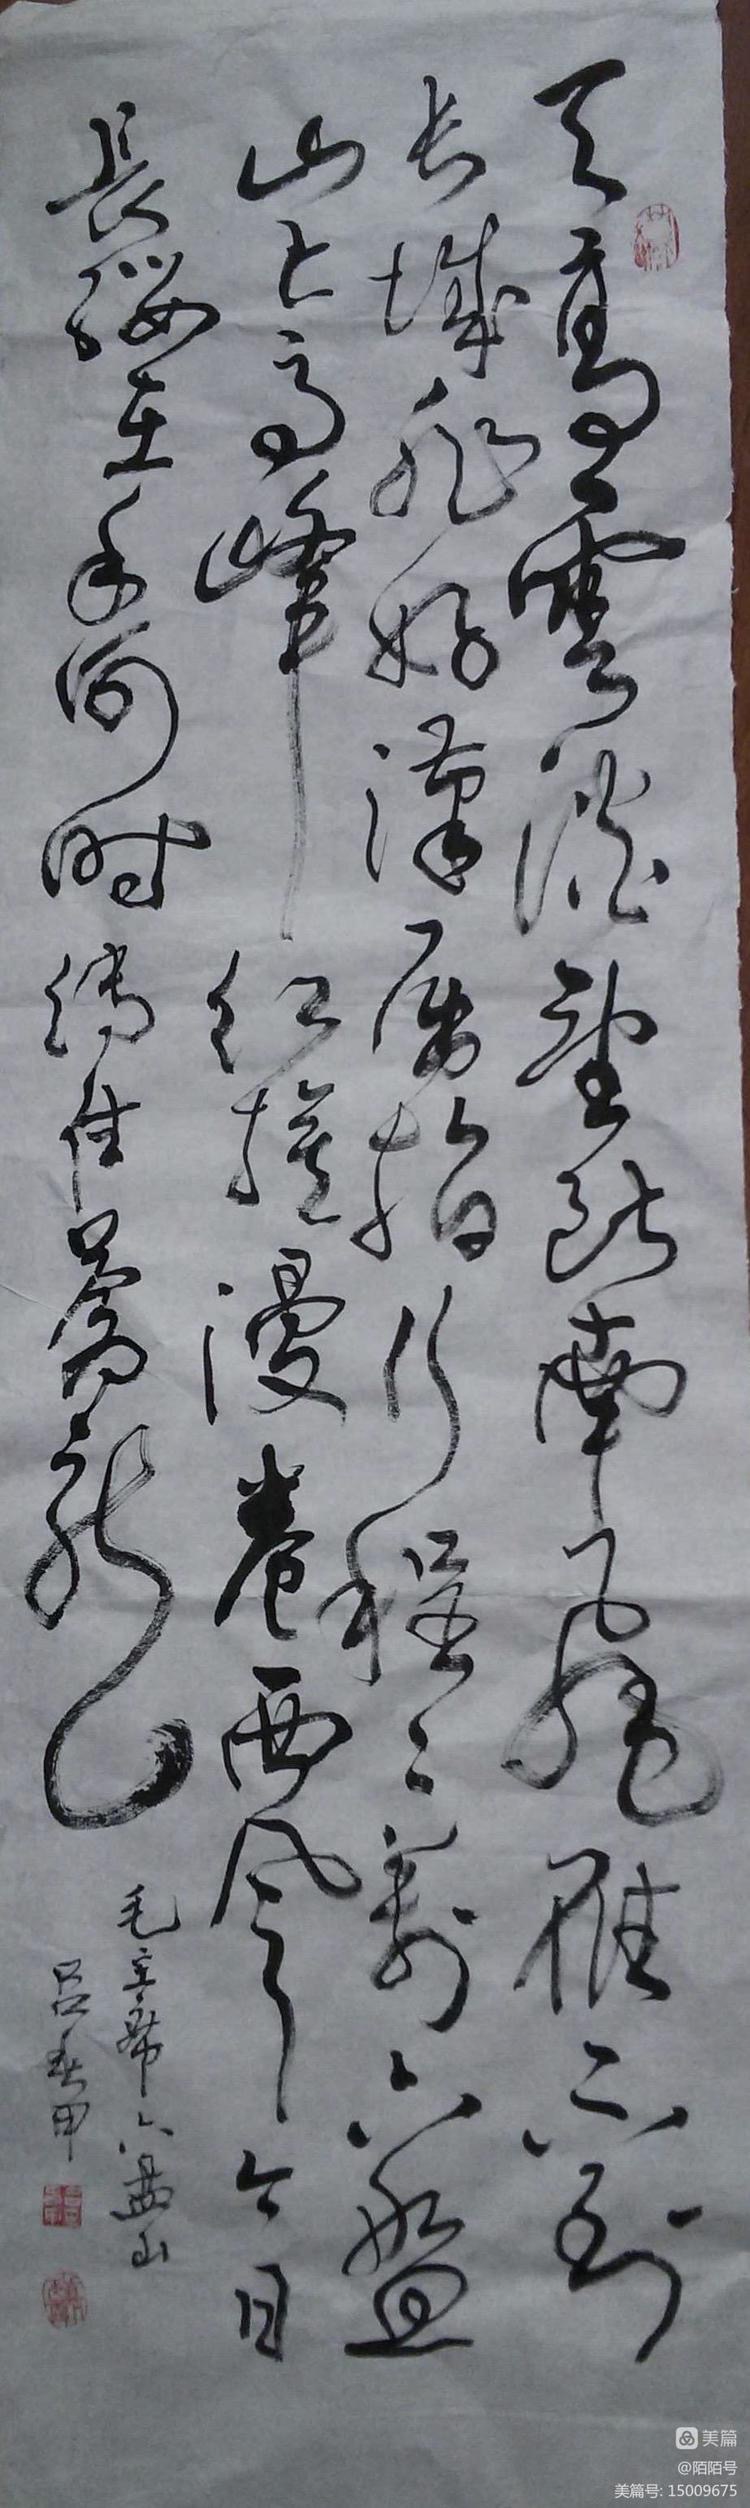 天高雲淡望断南飛雁不到
长城非好漢屈指行程二萬六盤
山上高峰红旗漫卷西风今日
長缨在手何时縛住蒼龍
毛主席六盘山
吕甲
美篇
@陌陌号
美篇号: 15009675